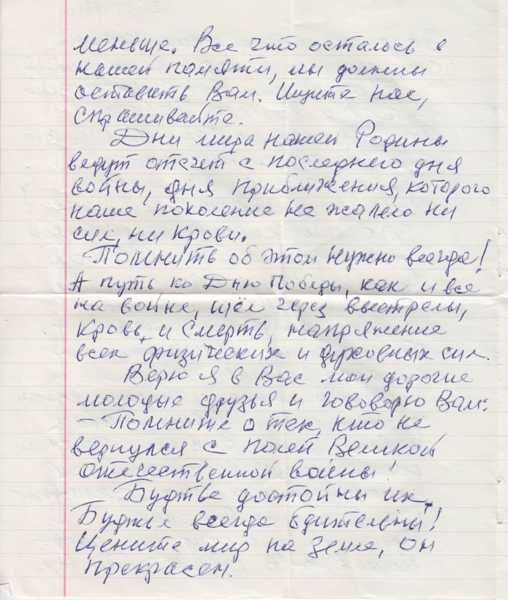 меньше. Все что осталось в
нашей памяти, мы должны
оставить Вам. Ищите нас,
спрашивайте.
Дни мира нашей Родины
ведут отсчет с последнего дня
войны, дня приближения, которого
наше поколение не жалело ни
сил, ни крови.
Помнить об этом нужно всегда!
А путь ко Дню Победы, как и все
на войне, шёл через выстрелы,
кровь и смерть, напряжение
всех физических и духовных сил.
Верю я в Вас мои дорогие
молодые друзья и гововорю Вам:
– Помните о тех, кто не
вернулся с полей Великой
отечественной войны!
Будьте достойны их.
Будьте всегда бдительны!
Цените мир на Земле, он
прекрасен.